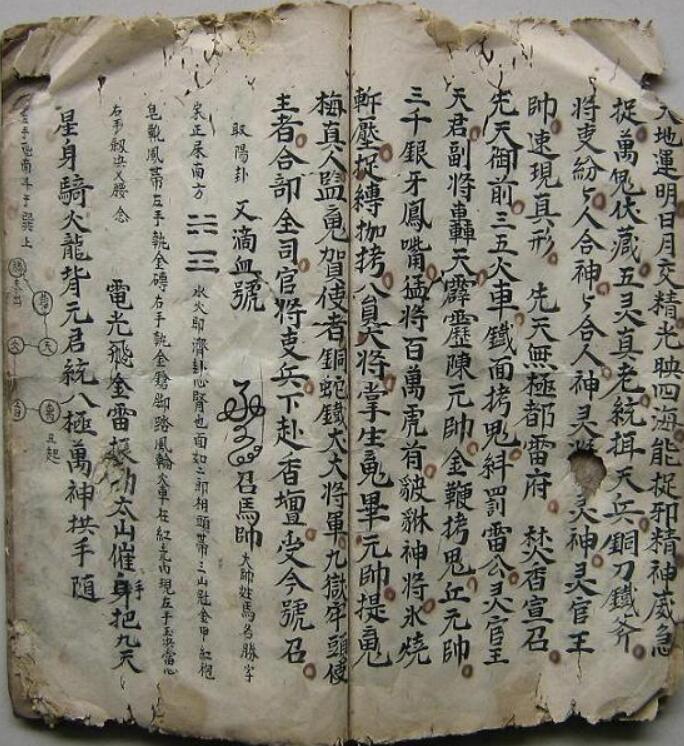 天地運明日月交精光映四海能捉邪精神威急
捉萬鬼伏藏五灵真老統揖天兵銅刀鐵斧
将吏紛〻人合神〻合人神灵 灵神灵官王
帥速現真形 先天無極都雷府 焚香宣召
先天御前三五火車鐵面拷鬼糾罰雷公灵官王
天君副将轟天霹靂陳元帥金鞭拷鬼丘元帥
三千銀牙鳳嘴猛将百萬虎 貔貅神将氷燒
斬壓捉縛枷拷八員大将掌生䰟畢元帥提䰟
梅真人監䰟賀使者銅蛇鐵犬大将軍九獄牢頭使
主者合部全司官将吏兵下赴香壇受今號召
取陽卦 又滴血號 召馬帥 大帥姓馬名勝字
正 南方 水火即濟卦心腎也面如二郎相頭帶三山 金甲紅袍
皂靴風帶左手執金磚右手執金鎗脚踏風輪火車在紅光内現左手玉决當心
右手劔決乂腰 念 電光飛金雷振功太山催手身把九天
星身騎火龍背元君統八極萬神拱手隨
左手 上